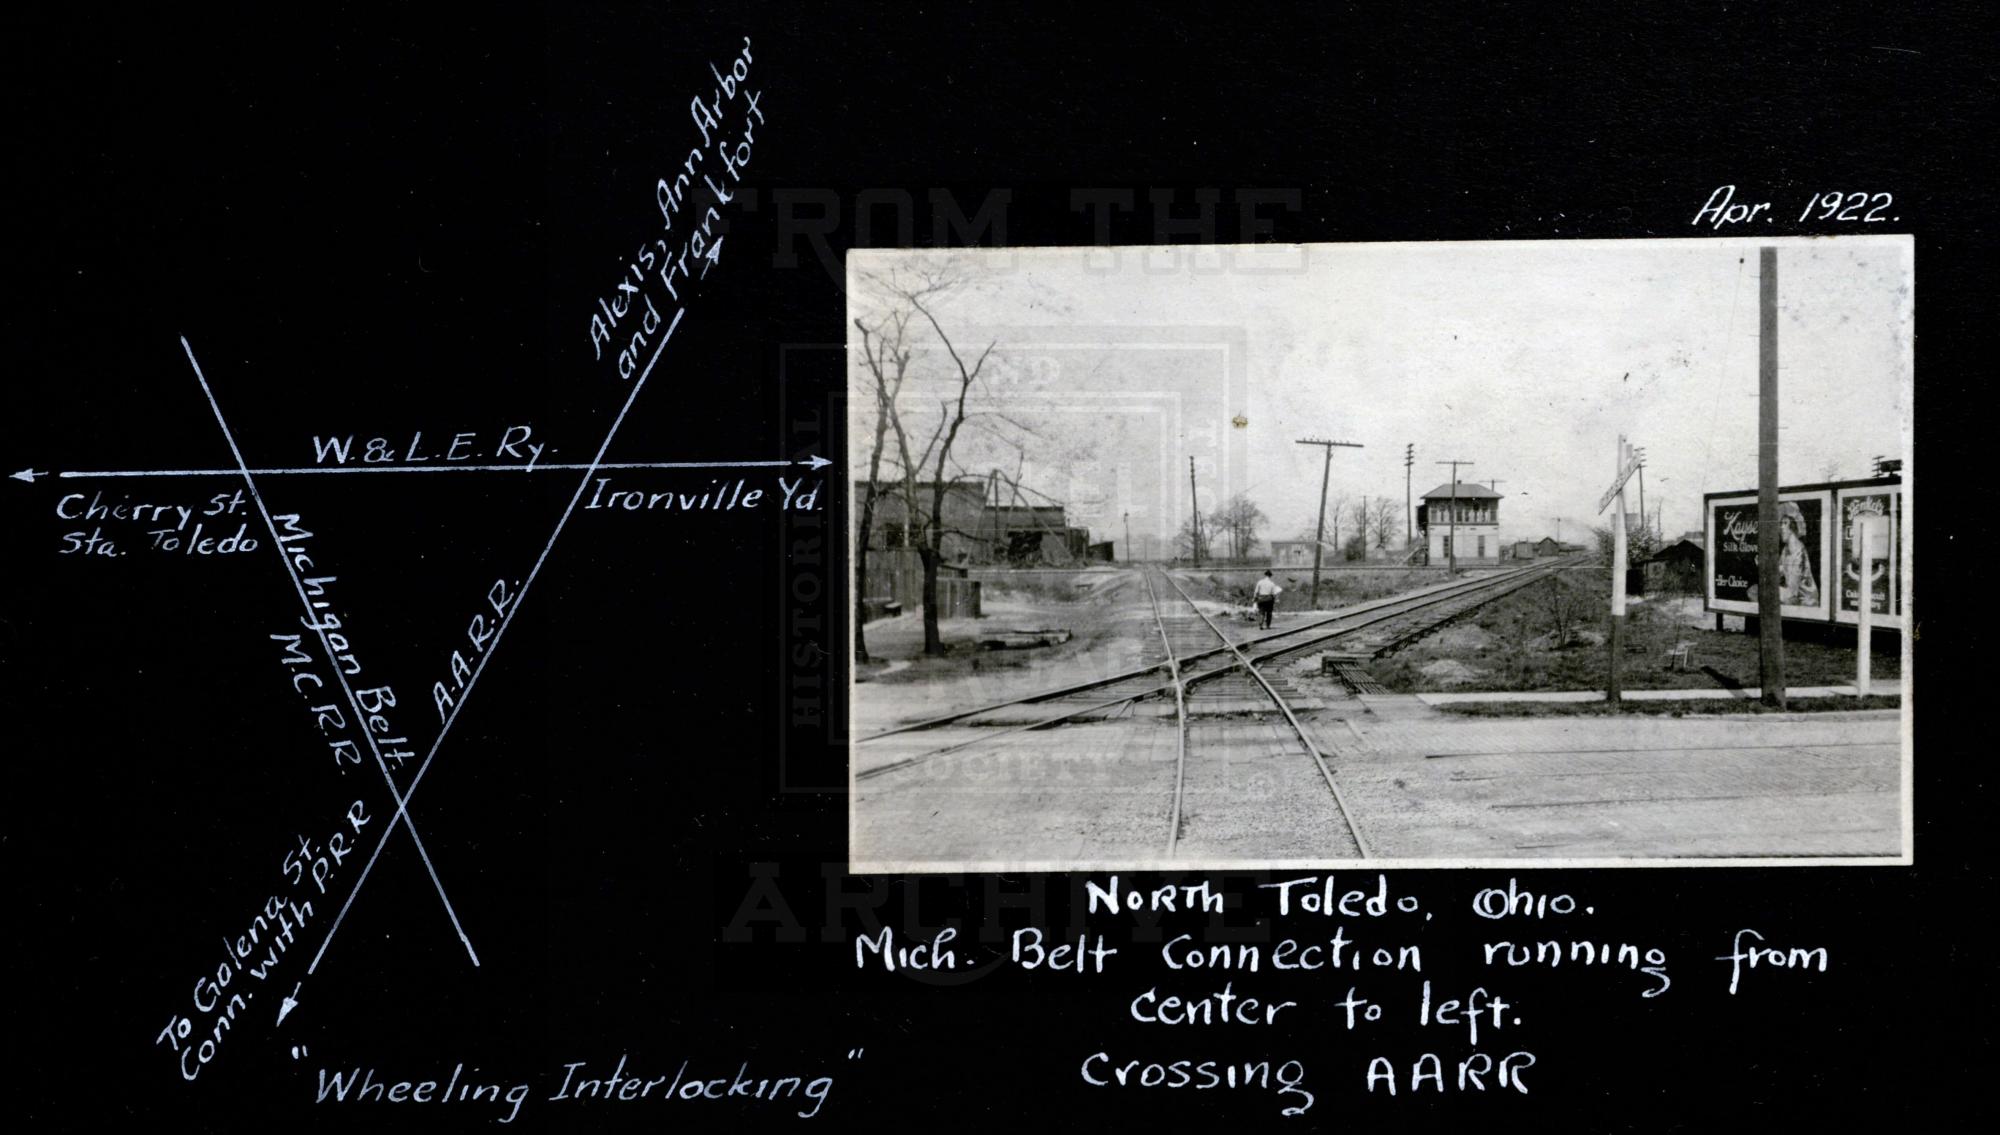 Alexis, Ann Arbor
and Frankfort
W. & L. E. Ry.
Cherry St.
Sta. Toledo
Ironville Yd.
Michigan Belt.
M.C.R.R.
A.A.R.R.
To Galena St.
Conn. with P.R.R
"Wheeling Interlocking"
Apr. 1922.
Kayser
Silk Gloves
Her Choice
North Toledo, Ohio.
Mich. Belt Connection running from
center to left.
Crossing AARR
FROM THE
HISTORICAL
SOCIETY
ARCHIVE